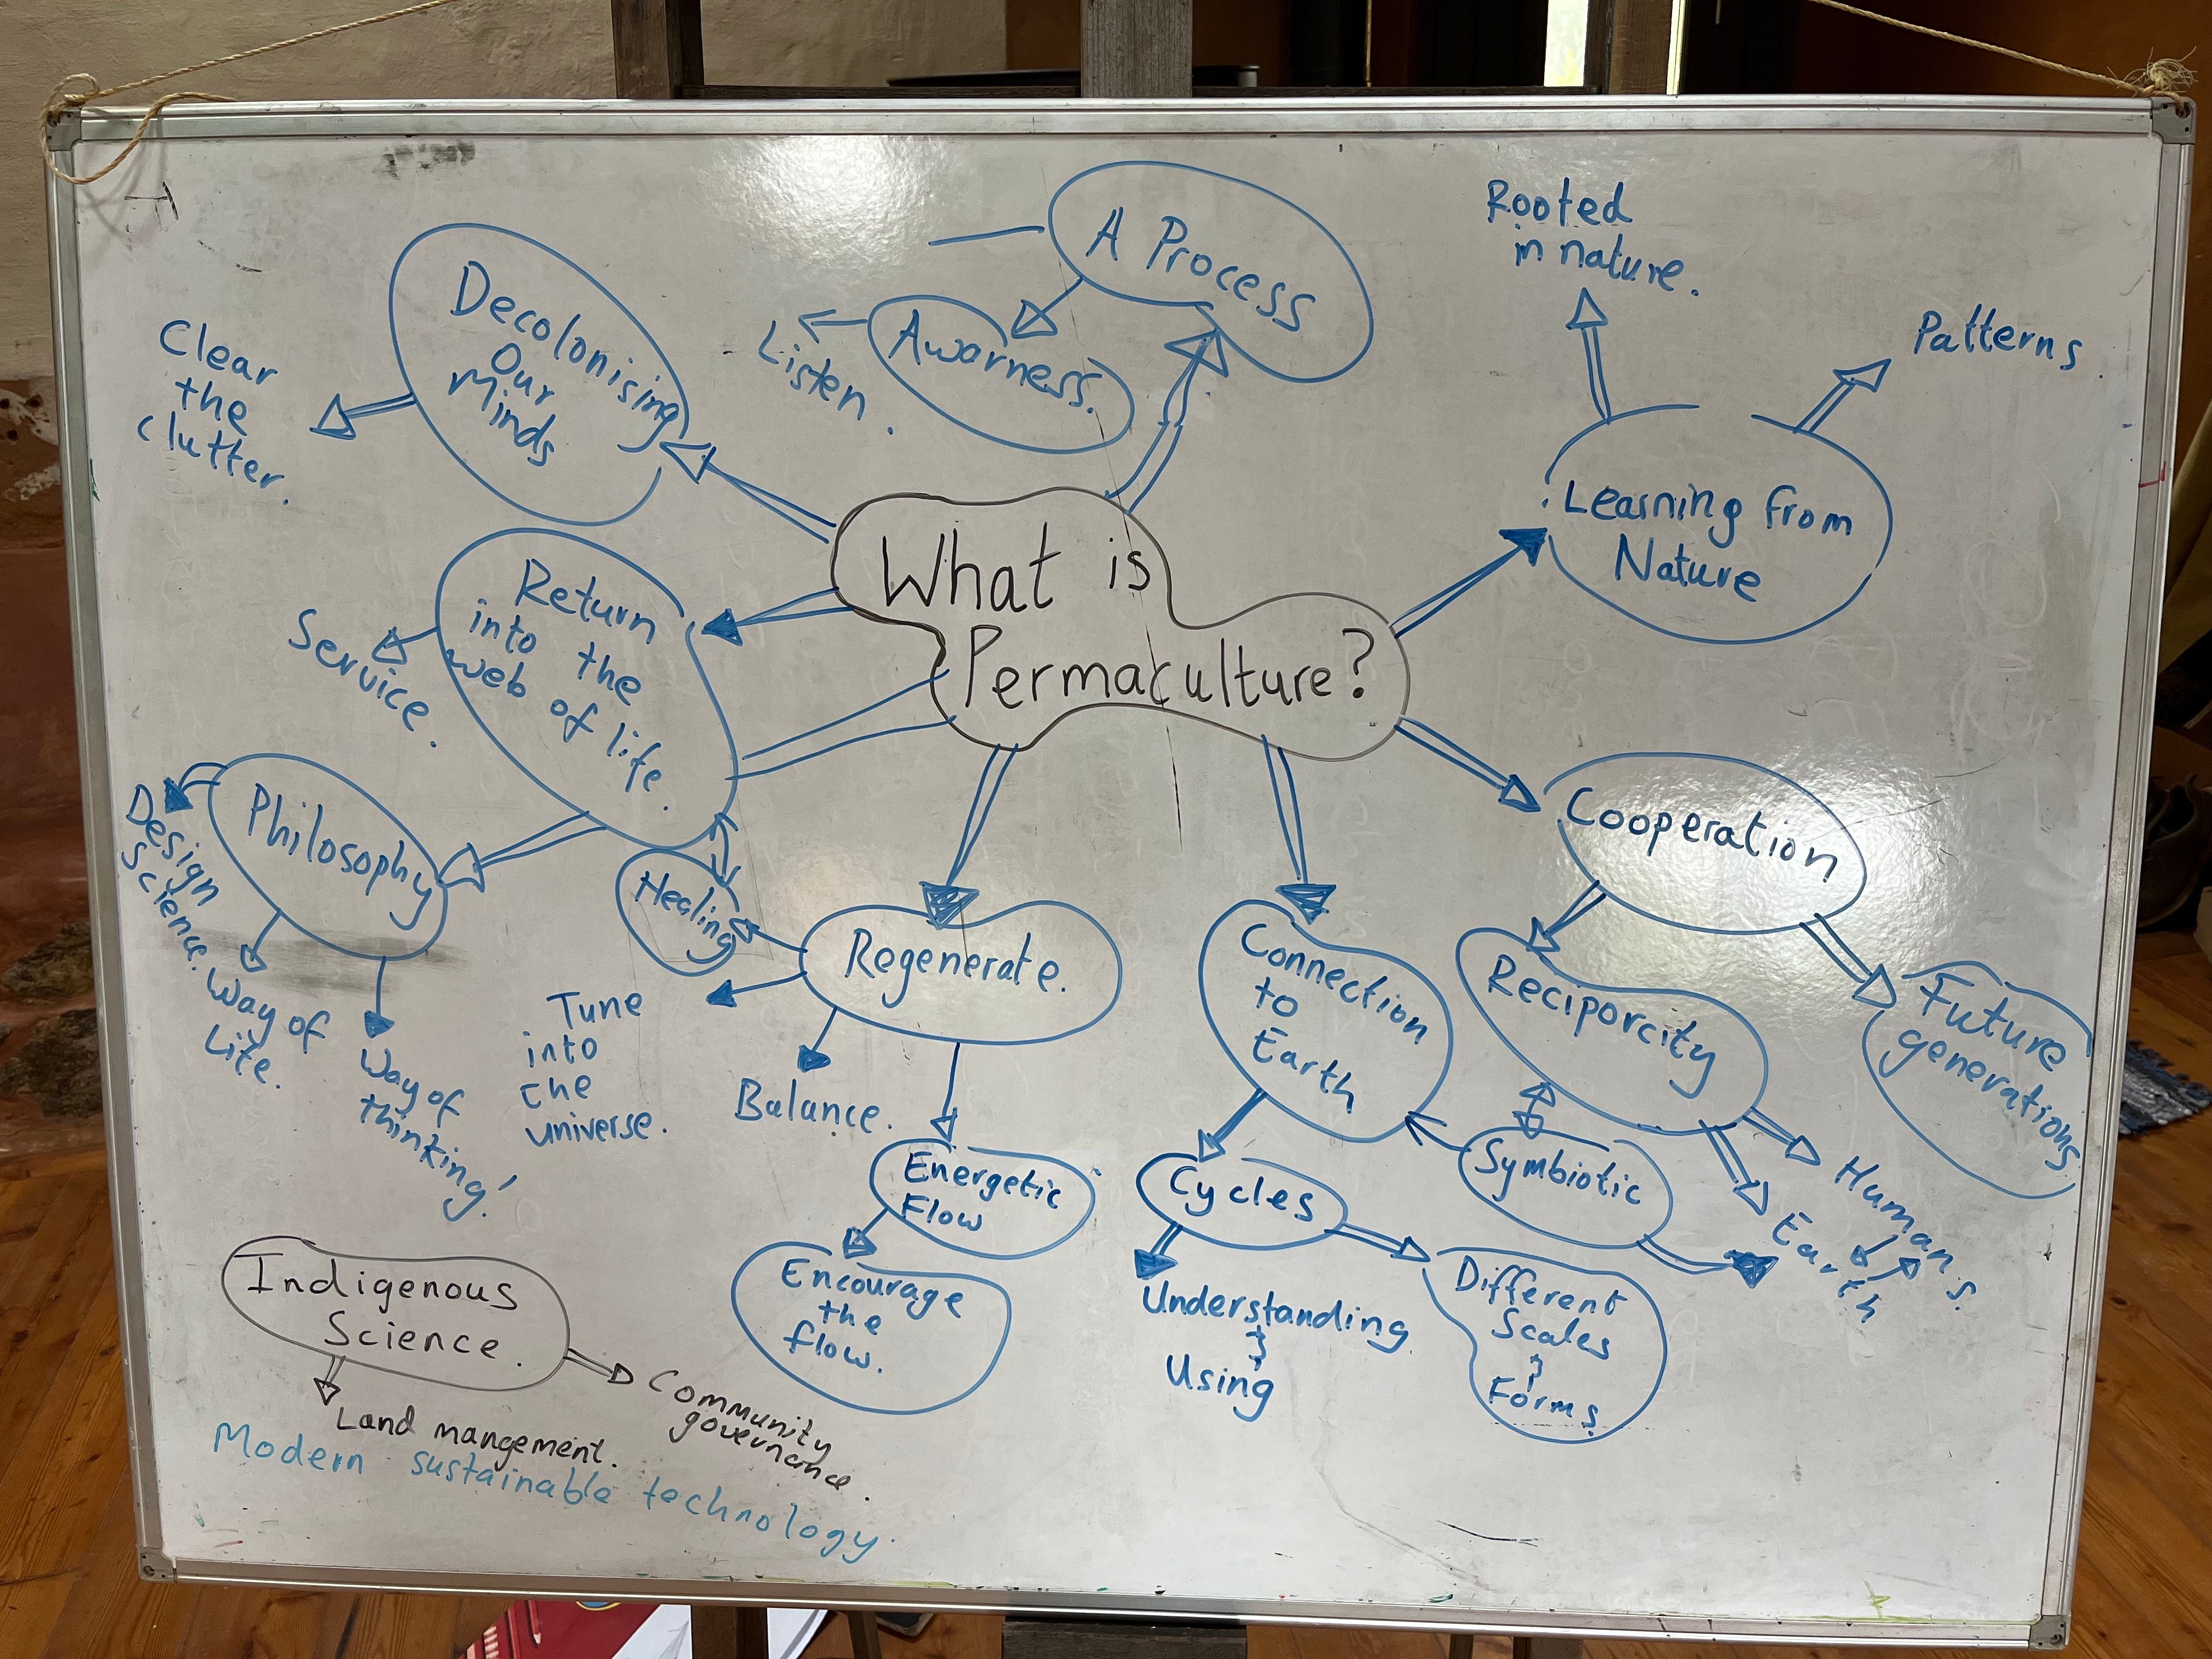 What is
Permaculture?
A Process
Awarness.
Listen.
Decolonising
Our
Minds
Clear
the
clutter.
Return
into the
web of life.
Service.
Philosophy
Design
Science.
Way of
Life.
Way of
thinking!
Healing
Regenerate.
Tune
into
the
universe.
Balance.
Energetic
Flow
Encourage
the
flow.
Rooted
in nature.
Patterns.
Learning from
Nature
Cooperation
Reciporcity
Future
generations
Humans.
Earth
Symbiotic
Connection
to
Earth
Cycles
Understanding
&
Using
Different
Scales
&
Forms.
Indigenous
Science.
Land mangement.
Community
governance.
Modern sustainable technology.